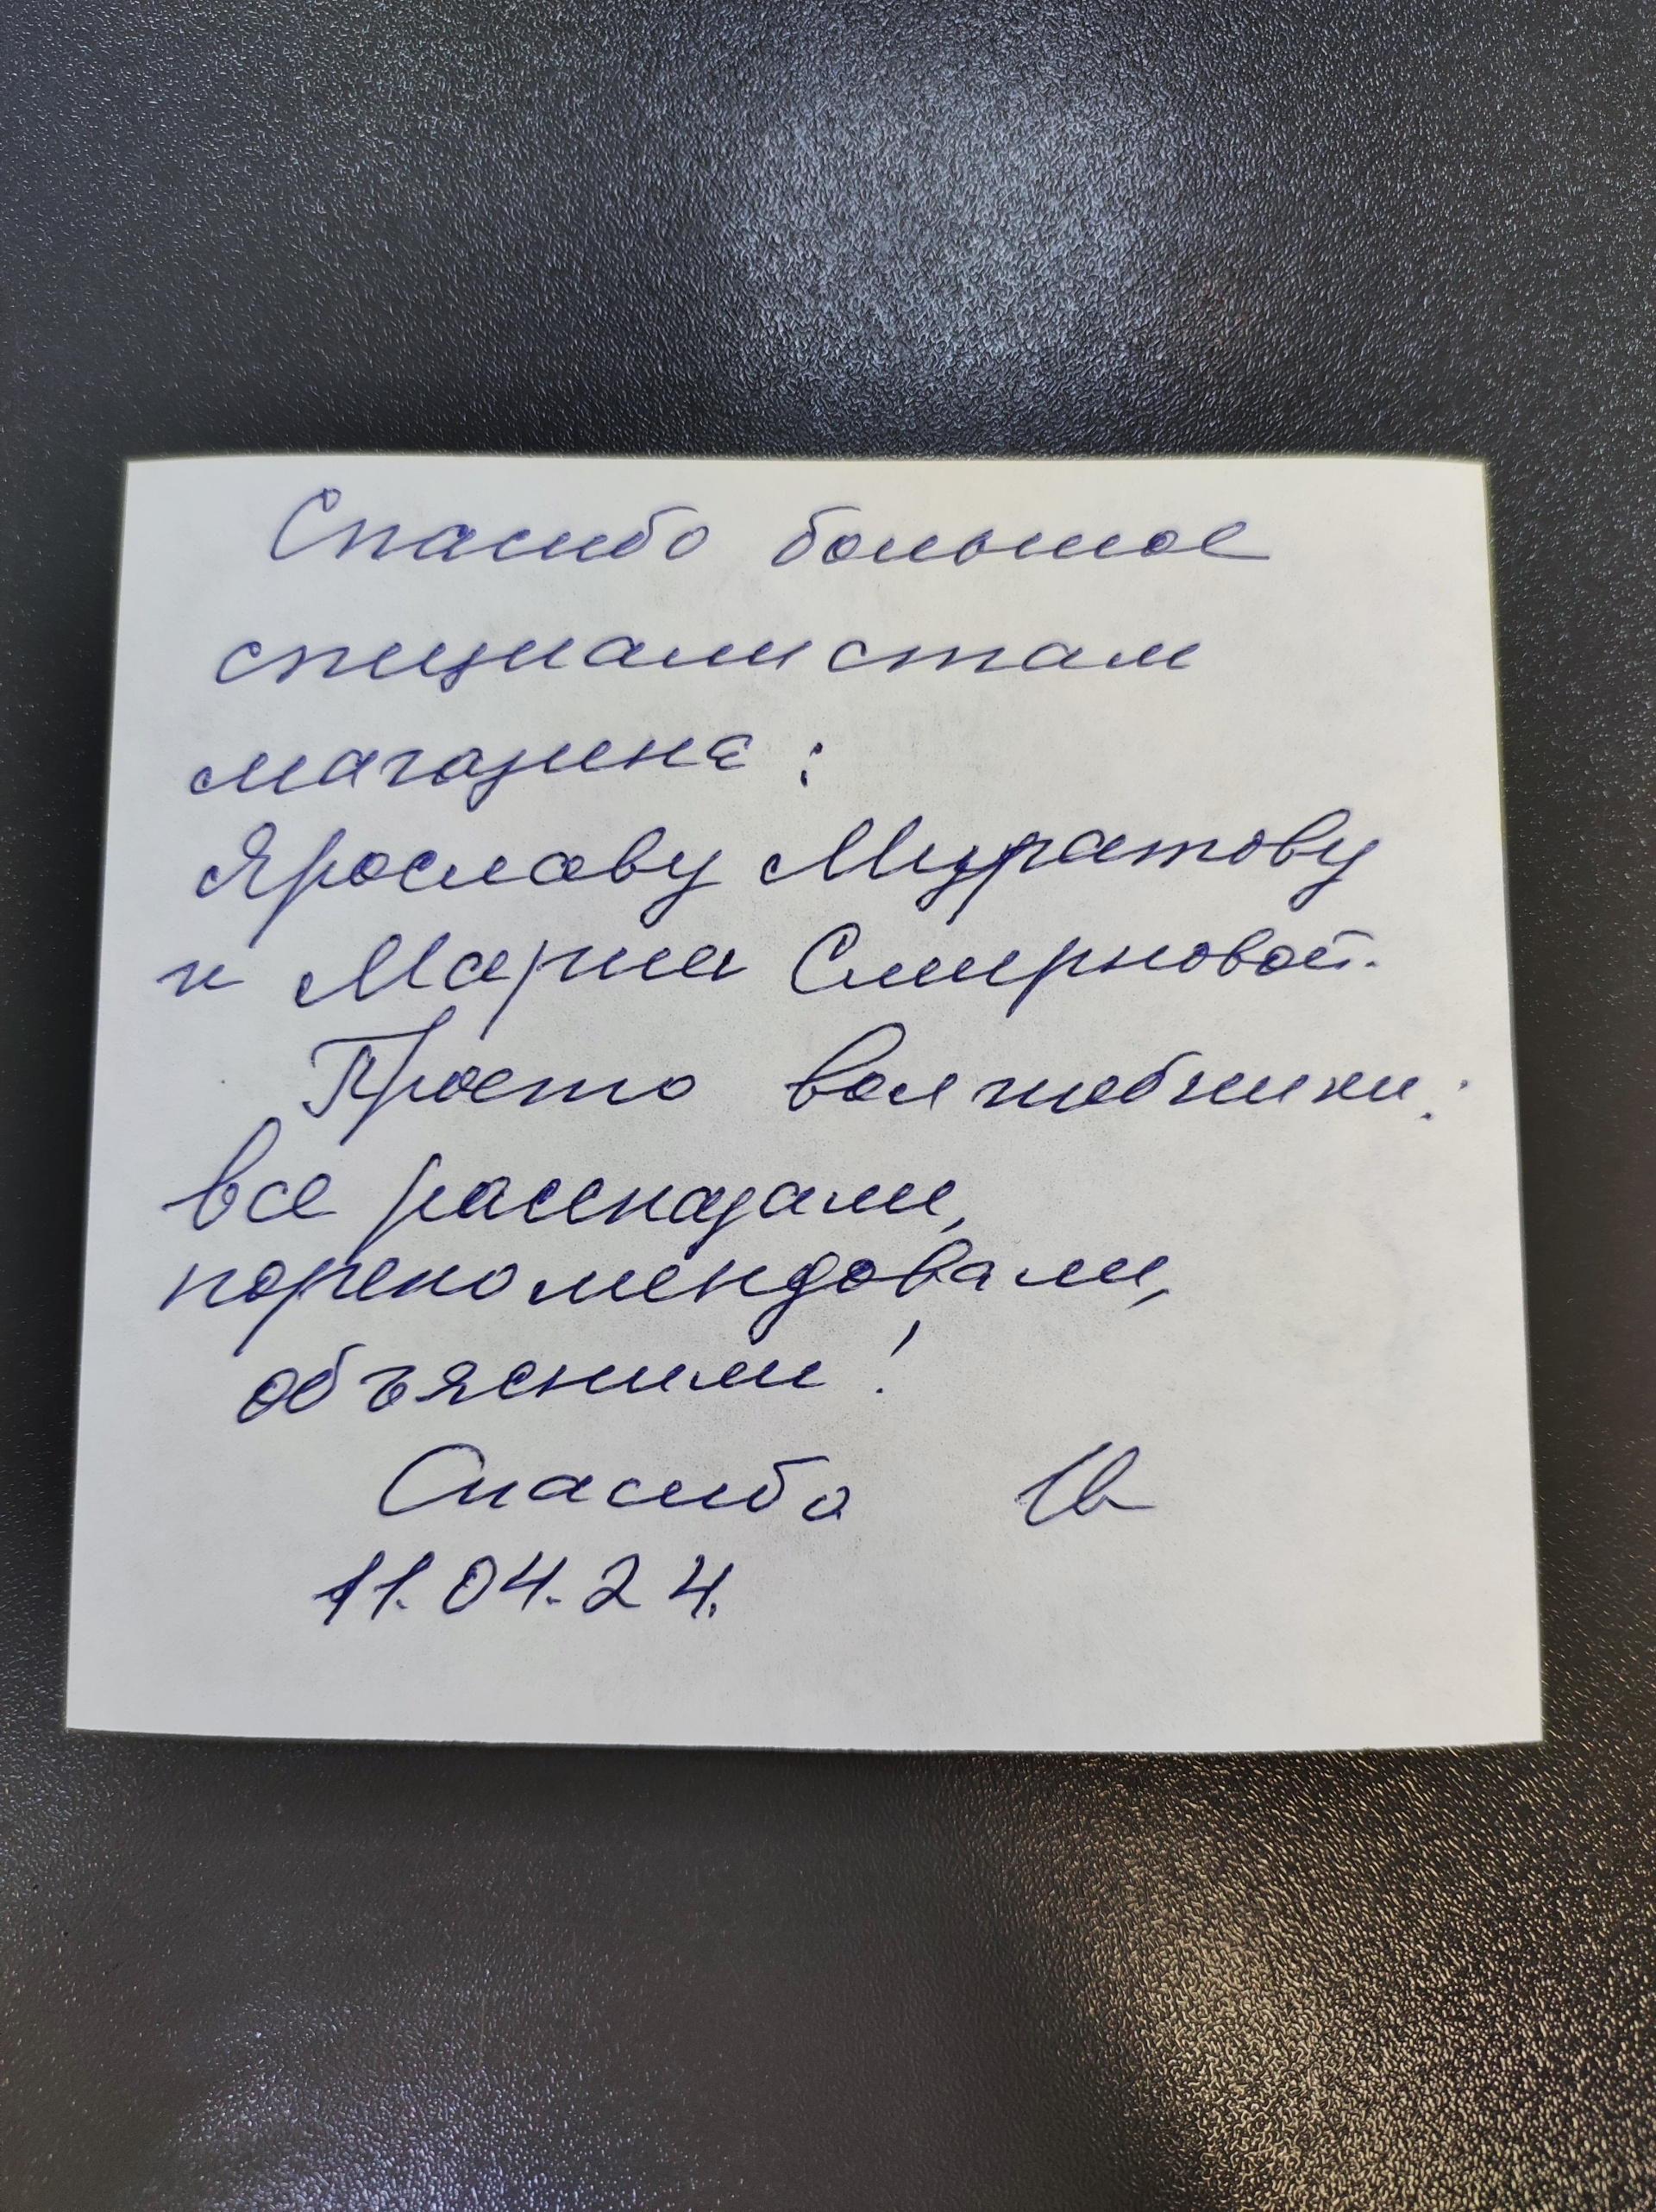 Спасибо большое
специалистам
магазина:
Ярославу Муратову
и Мария Смирновой.
Просто волшебники:
все рассказали,
порекомендовали,
объяснили!
Спасибо
11.04.24.